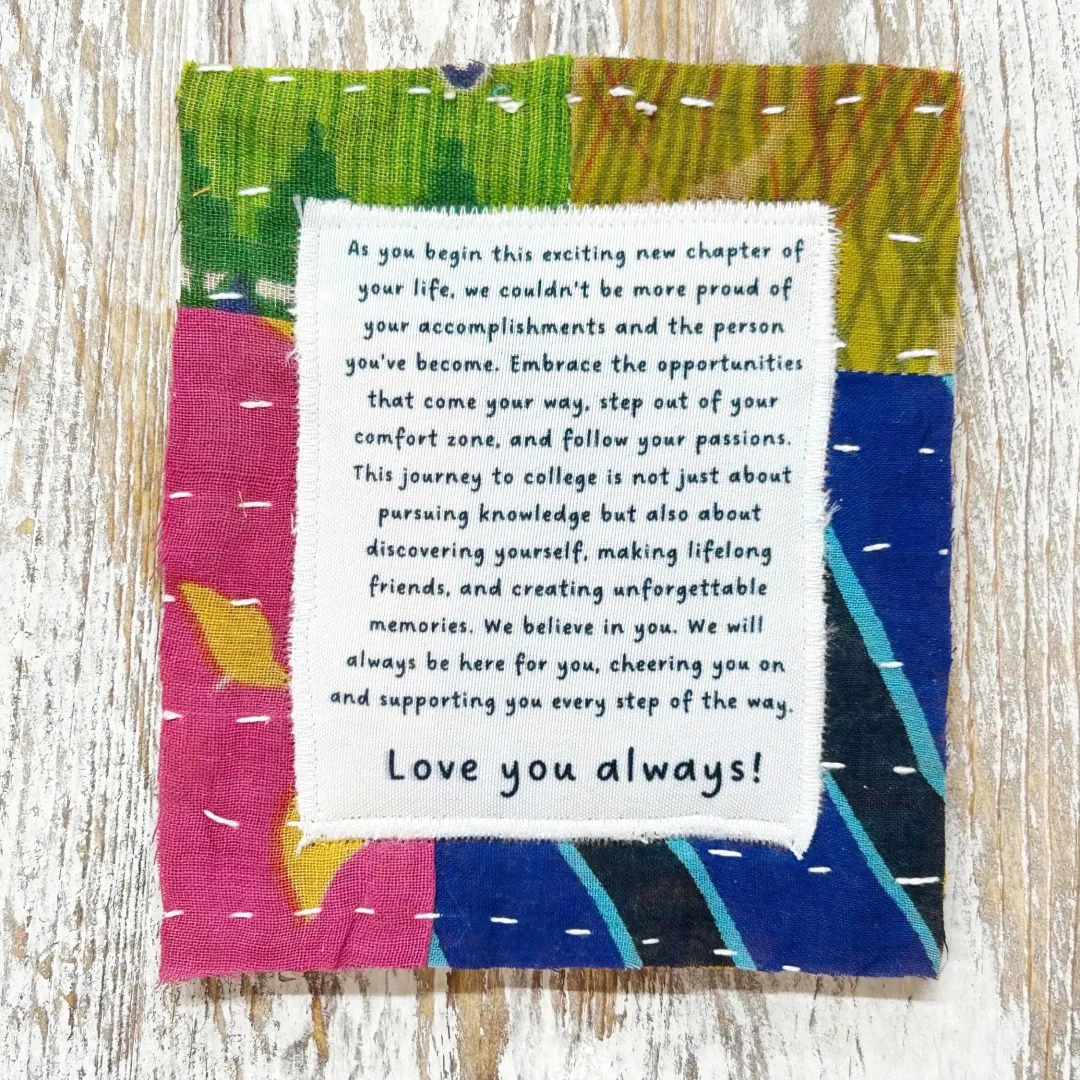 As you begin this exciting new chapter of
your life, we couldn't be more proud of
your accomplishments and the person
you've become. Embrace the opportunities
that come your way, step out of your
comfort zone, and follow your passions.
This journey to college is not just about
pursuing knowledge but also about
discovering yourself, making lifelong
friends, and creating unforgettable
memories. We believe in you. We will
always be here for you, cheering you on
and supporting you every step of the way.
Love you always!